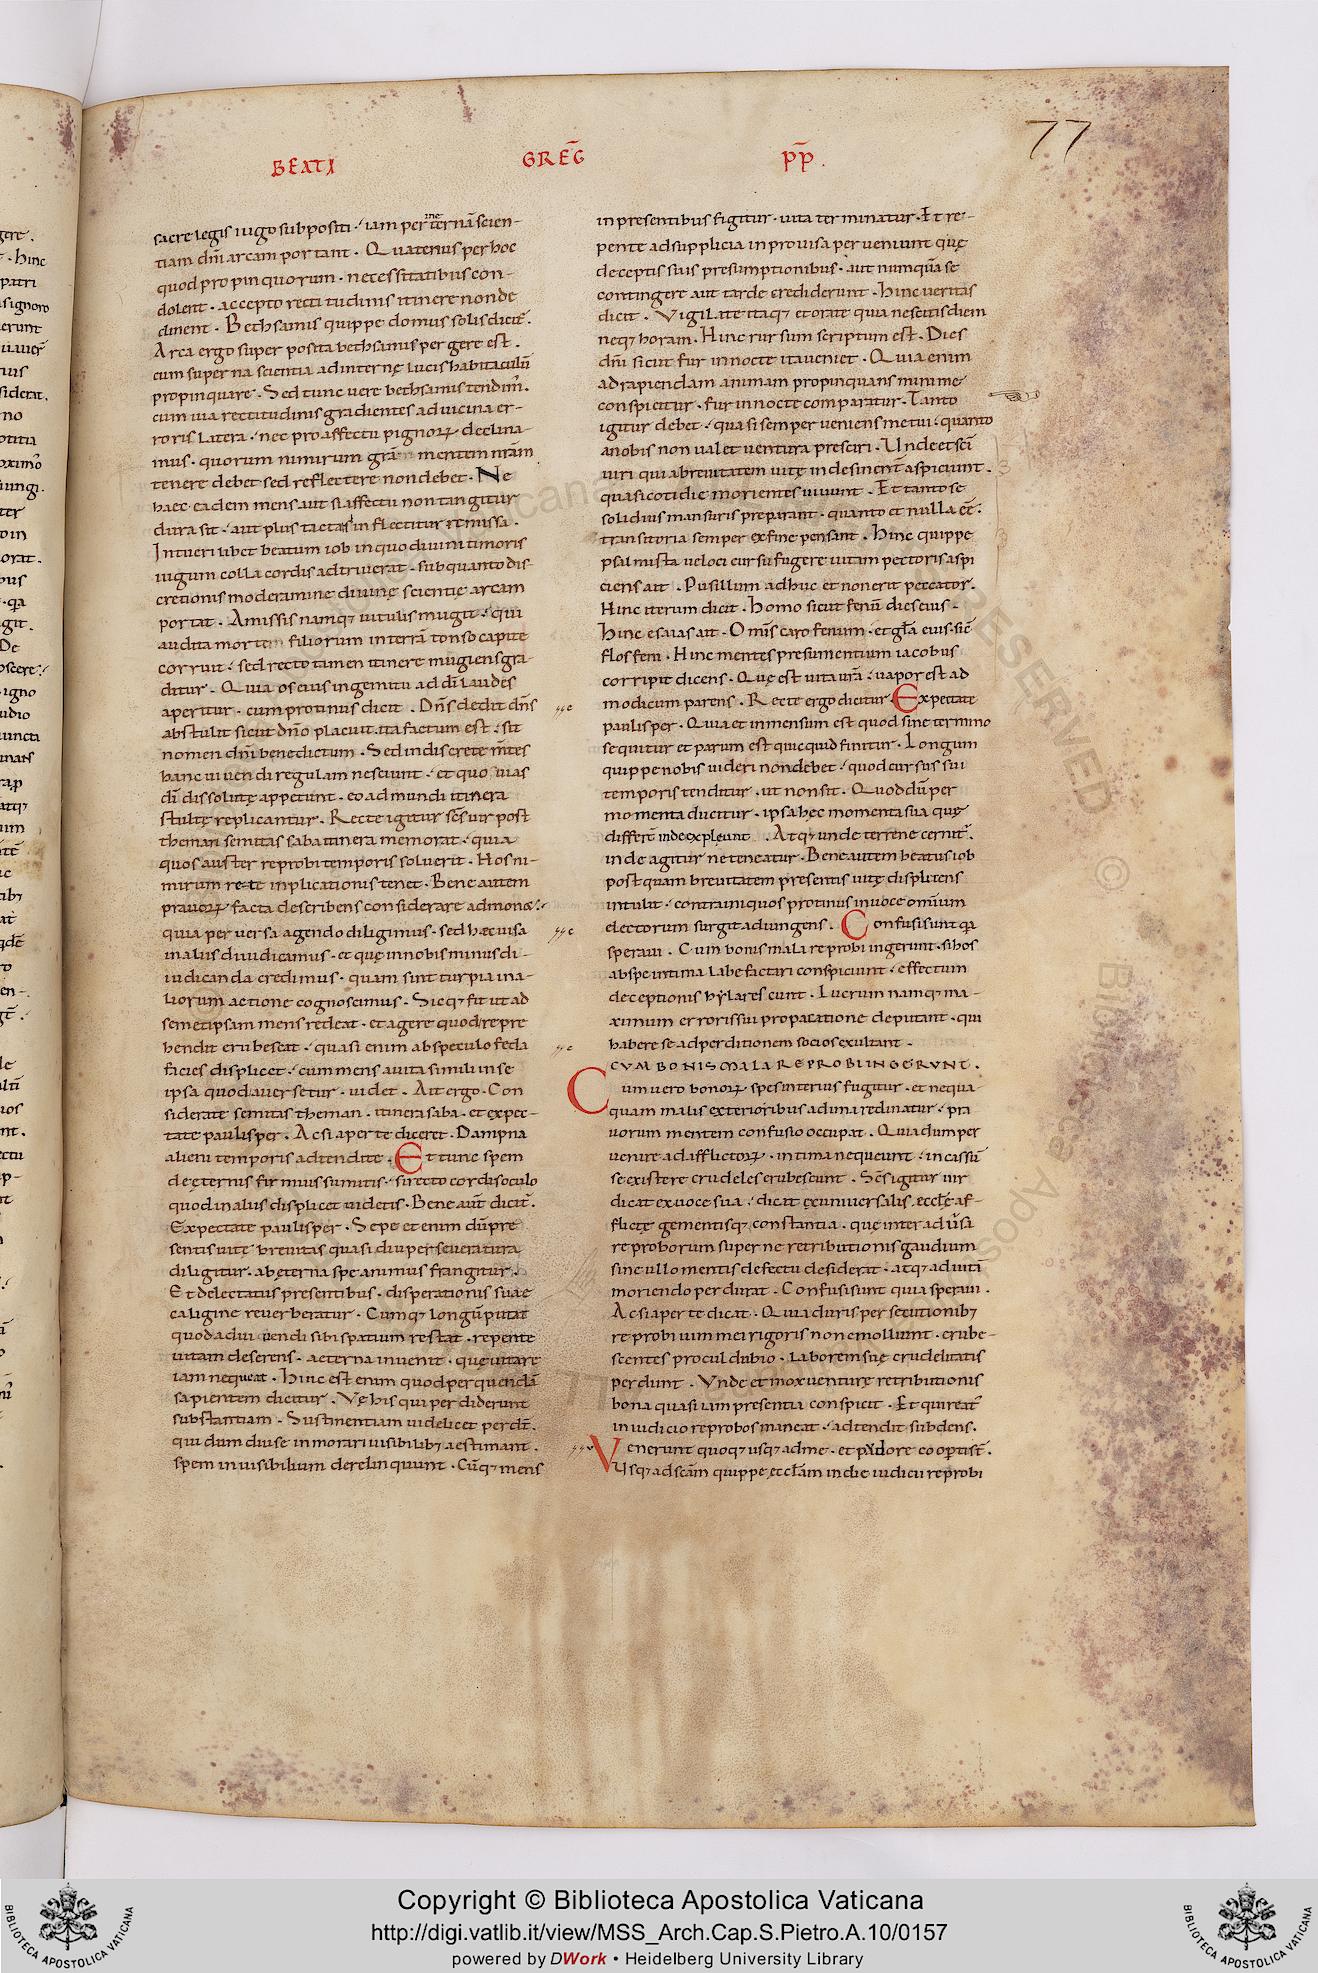 77
BEATI GREḠ PP̄.
sacre legis iugo subpositi ·́ iam per internā scien-
tiam dn̄i arcam portant · Quatenus per hoc
quod propinquorum · necessitatibus con-
dolent · accepto rectitudinis itinere non de
clinent · Bethsamis quippe domus solis dicit̄.
Arca ergo super posita bethsamis pergere est ·
cum superna scientia ad internę lucis habitaculū
propinquare · Sed tunc uere bethsamis tendim̄.
cum uia rectitudinis gradientes ad uicina er-
roris latera ·́ nec pro affectu pignorꝝ declina-
mus · quorum nimirum grā mentem nr̄am
tenere debet sed reflectere non debet · Ne
haec eadem mens aut si affectu non tangitur
dura sit ·́ aut plus tacta si inflectitur remissa ·
Intueri libet beatum iob in quo diuini timoris
iugum colla cordis adtriuerat · sub quanto dis-
cretionis moderamine diuinę scientię arcam
portat · Amissis namq; uitulis mugit ·́ qui
audita morte filiorum in terrā tonso capite
corruit ·́ sed recto tamen itinere mugiens gra-
ditur · Quia os eius in gemitu ad dī laudes
aperitur · cum protinus dicit · Dn̄s dedit dn̄s
abstulit sicut dn̄o placuit ita factum est ·́ sit
nomen dn̄i benedictum · Sed indiscrete m̄tes
hanc uiuendi regulam nesciunt ·́ et quo uias
dī dissolutę appetunt · eo ad mundi itinera
stultę replicantur · Recte igitur sc̄s uir post
theman semitas saba itinera memorat ·́ quia
quos auster reprobi temporis soluerit · Hos ni-
mirum rete inplicationis tenet · Bene autem
prauorꝝ facta describens considerare admonet ·́
quia peruersa agendo diligimus · sed hęc uisa
in aliis diiudicamus · et quę in nobis minus di-
iudicanda credimus · quam sint turpia in a-
liorum actione cognoscimus · Sicq; fit ut ad
semetipsam mens redeat · et agere quod repre
hendit erubescat ·́ quasi enim ab speculo feda
facies displicet ·́ cum mens a uita simili in se
ipsa quod auersetur · uidet · Ait ergo · Con
siderate semitas theman · itinera saba · et expec-
tate paulisper · Ac si aperte diceret · Dampna
alieni temporis adtendite · Et tunc spem
de ęternis firmius sumitis ·́ si recto cordis oculo
quod in aliis displicet uidetis · Bene aut̄ dicit̄.
Expectate paulisper · Sepe etenim dū pre
sentis uitę breuitas quasi diu perseueratura
diligitur · ab ęterna spe animus frangitur ·
Et delectatus presentibus · disperationis suae
caligine reuerberatur · Cumq; longū putat
quod ad uiuendi sibi spatium restat · repente
uitam deserens · aeterna inuenit · quę uitare
iam nequeat · Hinc est enim quod per quendā
sapientem dicitur · Vę his qui perdiderunt
substantiam · Sustinentiam uidelicet perdt̄.
qui dum diu se inmorari uisibilib; aestimant ·
spem inuisibilium derelinquunt · Cūq; mens
in presentibus figitur · uita terminatur · Et re-
pente ad supplicia inprouisa perueniunt quę
deceptis suis presumptionibus · aut numquā se
contingere aut tarde crediderunt · Hinc ueritas
dicit · Vigilate itaq; et orate quia nescitis diem
neq; horam · Hinc rursum scriptum est · Dies
dn̄i sicut fur in nocte ita ueniet · Quia enim
ad rapiendam animam propinquans minime
conspicitur · fur in nocte comparatur · Tanto
igitur debet ·́ quasi semper ueniens metui ·́ quanto
a nobis non ualet uentura presciri · Unde et sc̄i
uiri qui a breuitatem uitę indesinent̄ aspiciunt ·
quasi cotidie morientes uiuunt · Et tanto se
solidius mansuris preparant · quanto et nulla eē
transitoria semper ex fine pensant · Hinc quippe
psalmista ueloci cursu fugere uitam peccatoris aspi
ciens ait · Pusillum adhuc et non erit peccator ·
Hinc iterum dicit · Homo sicut fenū dies eius ·
Hinc esaias ait · Omīs caro fenum · et gl̄a eius · sic̄
flos feni · Hinc mentes presumentium iacobus
corripit dicens · Quę est uita ur̄a ·́ uapor est ad
modicum parens · Recte ergo dicitur Expectate
paulisper · Quia et inmensum est quod sine termino
sequitur et parum est quicquid finitur · Longum
quippe nobis uideri non debet ·́ quod cursus sui
temporis tenditur · ut non sit · Quod dū per
momenta ducitur · ipsa hęc momenta sua quę
differt̄ inde expleunt · Atq; unde terrene cernit̄.
inde agitur ne teneatur · Bene autem beatus iob
postquam breuitatem presentis uitę displicens
intulit ·́ contra iniquos protinus in uoce omīum
electorum surgit adiungens · Confusi sunt qa
speraui · Cum bonis mala reprobi ingerunt · si hos
ab spe intima labefactari conspiciunt ·́ effectum
deceptionis hylarescunt · Lucrum namq; ma-
ximum erroris sui propacatione deputant · qui
habere se ad perditionem socios exultant ·
CVM BONIS MALA REPROBI INGERVNT ·
Cum uero bonorꝝ spes interius fugitur · et nequa
quam malis exterioribus ad ima redinatur ·́ pra
uorum mentem confusio occupat · Quia dum per
uenire ad afflictorꝝ · intima nequeunt ·́ in cassū
se existere crudeles erubescunt · Sc̄s igitur uir
dicat ex uoce sua ·́ dicat ex uniuersalis ecclę af-
flictę gementisq; constantia · que inter aduersa
reproborum supernę retributionis gaudium
sine ullo mentis defectu desiderat · atq; ad uitā
moriendo perdurat · Confusi sunt quia speraui ·
Ac si aperte dicat · Quia duris persecutionib;
reprobi uim mei rigoris non emolliunt · erube-
scentes procul dubio · laborem suę crudelitatis
perdunt · Vnde et mox uenturę retributionis
bona quasi iam presentia conspicit · Et qui reat̄
in iudicio reprobos maneat ·́ adtendit subdens ·
Venerunt quoq; usq; ad me · et pudore cooptist̄.
Vsq; ad scām quippe ęccl̄am in die iudicii reprobi
Copyright © Biblioteca Apostolica Vaticana
http://digi.vatlib.it/view/MSS_Arch.Cap.S.Pietro.A.10/0157
powered by DWork • Heidelberg University Library
BIBLIOTECA APOSTOLICA VATICANA
BIBLIOTECA APOSTOLICA VATICANA